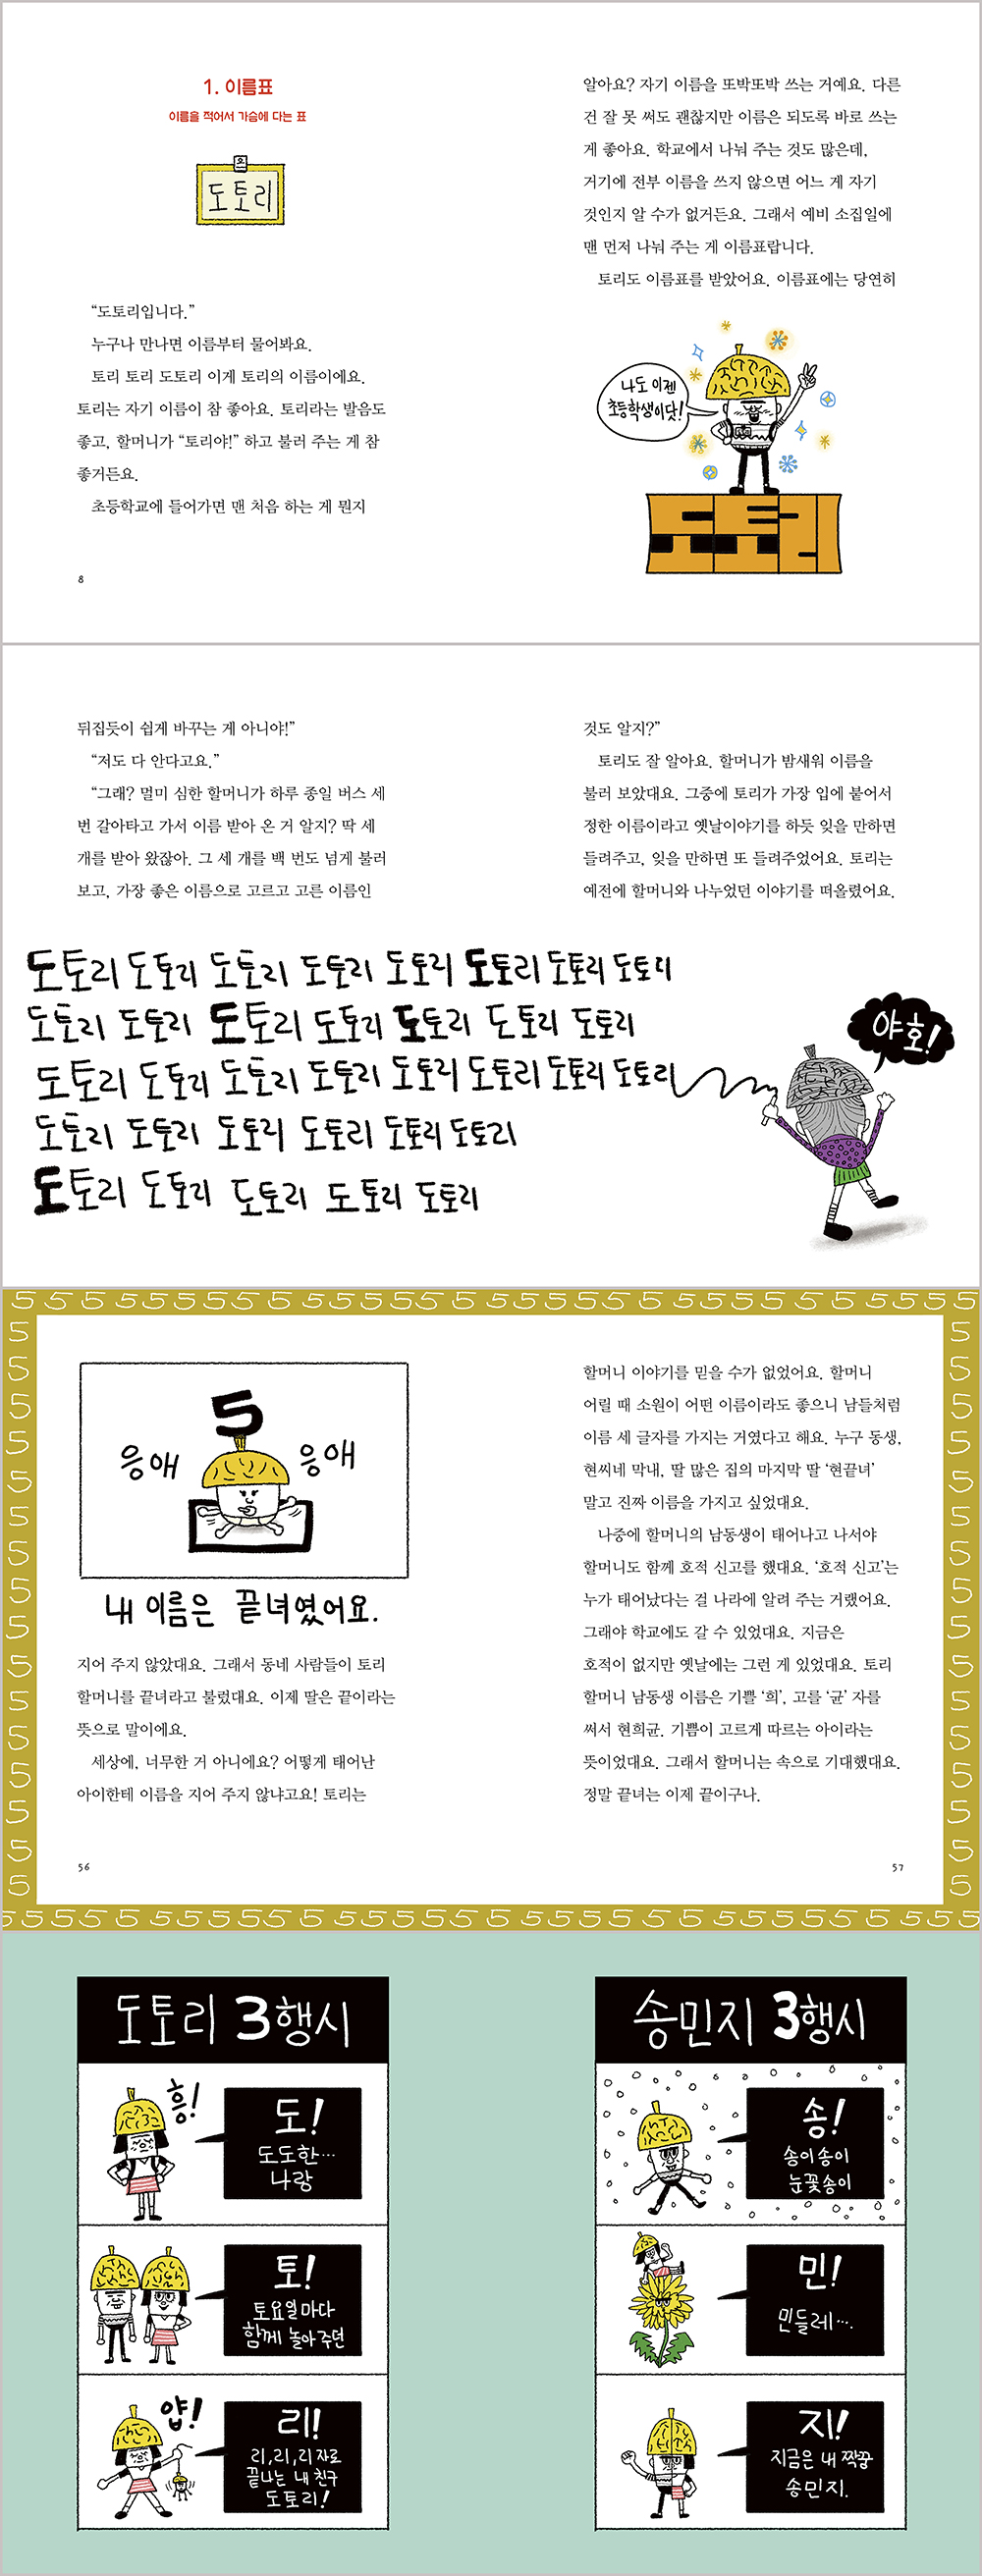 1. 이름표
이름을 적어서 가슴에 다는 표
도토리
“도토리입니다.”
누구나 만나면 이름부터 물어봐요.
토리 토리 도토리 이게 토리의 이름이에요.
토리는 자기 이름이 참 좋아요. 토리라는 발음도
좋고, 할머니가 “토리야!” 하고 불러 주는 게 참
좋거든요.
초등학교에 들어가면 맨 처음 하는 게 뭔지
8
알아요? 자기 이름을 또박또박 쓰는 거예요. 다른
건 잘 못 써도 괜찮지만 이름은 되도록 바로 쓰는
게 좋아요. 학교에서 나눠 주는 것도 많은데,
거기에 전부 이름을 쓰지 않으면 어느 게 자기
것인지 알 수가 없거든요. 그래서 예비 소집일에
맨 먼저 나눠 주는 게 이름표랍니다.
토리도 이름표를 받았어요. 이름표에는 당연히
나도 이젠
초등학생이닷!
도토리
뒤집듯이 쉽게 바꾸는 게 아니야!”
“저도 다 안다고요.”
“그래? 멀미 심한 할머니가 하루 종일 버스 세
번 갈아타고 가서 이름 받아 온 거 알지? 딱 세
개를 받아 왔잖아. 그 세 개를 백 번도 넘게 불러
보고, 가장 좋은 이름으로 고르고 고른 이름인
것도 알지?”
토리도 잘 알아요. 할머니가 밤새워 이름을
불러 보았대요. 그중에 토리가 가장 입에 붙어서
정한 이름이라고 옛날이야기를 하듯 잊을 만하면
들려주고, 잊을 만하면 또 들려주었어요. 토리는
예전에 할머니와 나누었던 이야기를 떠올렸어요.
도토리 도토리 도토리 도토리 도토리 도토리 도토리 도토리
도토리 도토리 도토리 도토리 도토리 도토리 도토리
도토리 도토리 도토리 도토리 도토리 도토리 도토리 도토리
도토리 도토리 도토리 도토리 도토리 도토리
도토리 도토리 도토리 도토리 도토리
야호!
5
응애
응애
내 이름은 끝녀였어요.
지어 주지 않았대요. 그래서 동네 사람들이 토리
할머니를 끝녀라고 불렀대요. 이제 딸은 끝이라는
뜻으로 말이에요.
세상에, 너무한 거 아니에요? 어떻게 태어난
아이한테 이름을 지어 주지 않냐고요! 토리는
56
할머니 이야기를 믿을 수가 없었어요. 할머니
어릴 때 소원이 어떤 이름이라도 좋으니 남들처럼
이름 세 글자를 가지는 거였다고 해요. 누구 동생,
현씨네 막내, 딸 많은 집의 마지막 딸 ‘현끝녀’
말고 진짜 이름을 가지고 싶었대요.
나중에 할머니의 남동생이 태어나고 나서야
할머니도 함께 호적 신고를 했대요. ‘호적 신고’는
누가 태어났다는 걸 나라에 알려 주는 거랬어요.
그래야 학교에도 갈 수 있었대요. 지금은
호적이 없지만 옛날에는 그런 게 있었대요. 토리
할머니 남동생 이름은 기쁠 ‘희’, 고를 ‘균’ 자를
써서 현희균. 기쁨이 고르게 따르는 아이라는
뜻이었대요. 그래서 할머니는 속으로 기대했대요.
정말 끝녀는 이제 끝이구나.
57
도토리 3행시
흥!
도!
도도한…
나랑
토!
토요일마다
함께 놀아 주던
얍!
리!
리,리,리 자로
끝나는 내 친구
도토리!
송민지 3행시
송!
송이송이
눈꽃송이
민!
민들레….
지!
지금은 내 짝꿍
송민지.